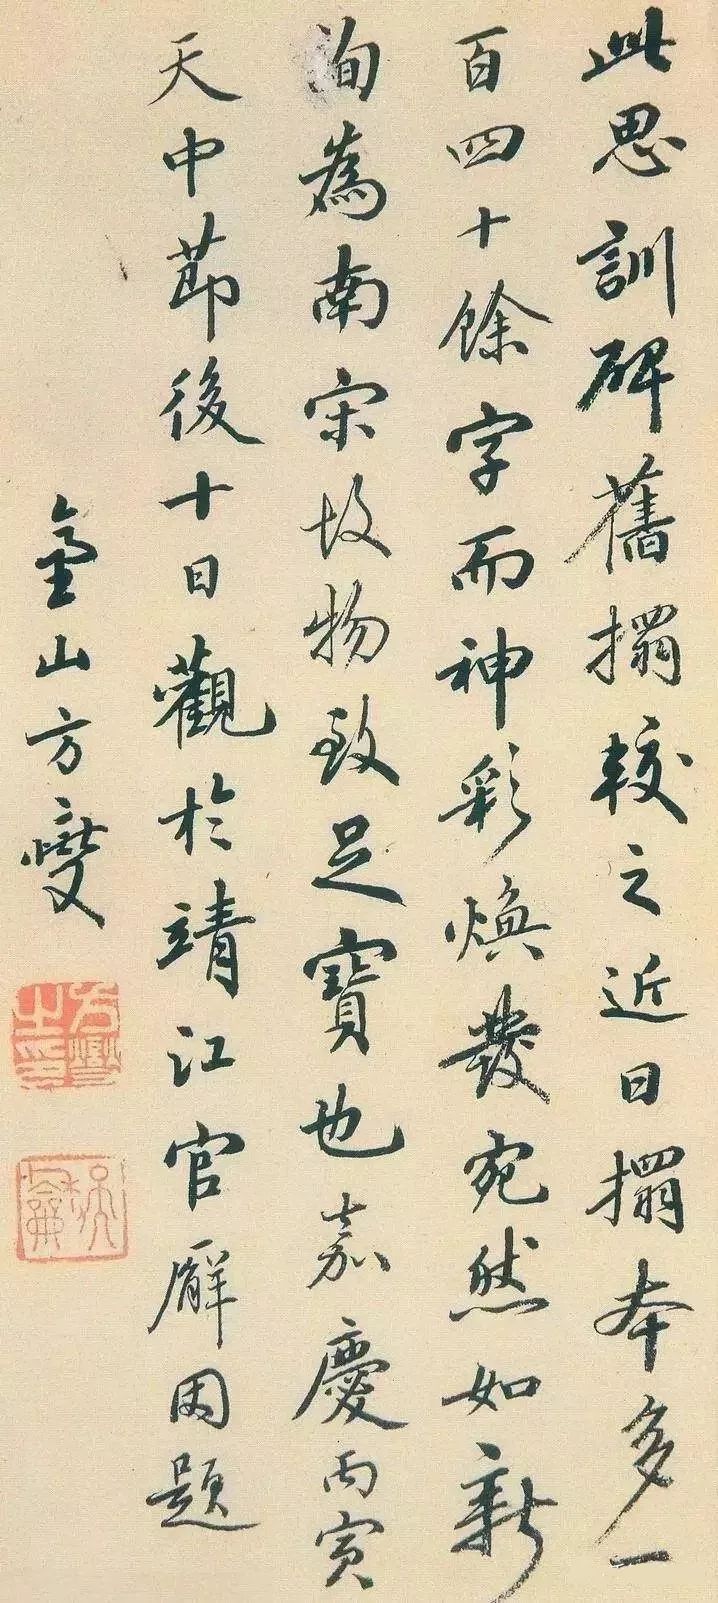 此思訓碑舊搨較之近日搨本多一
百四十餘字而神彩煥發宛然如新
洵為南宋故物致足寶也嘉慶丙寅
天中節後十日觀於靖江官廨因題
金山方燮